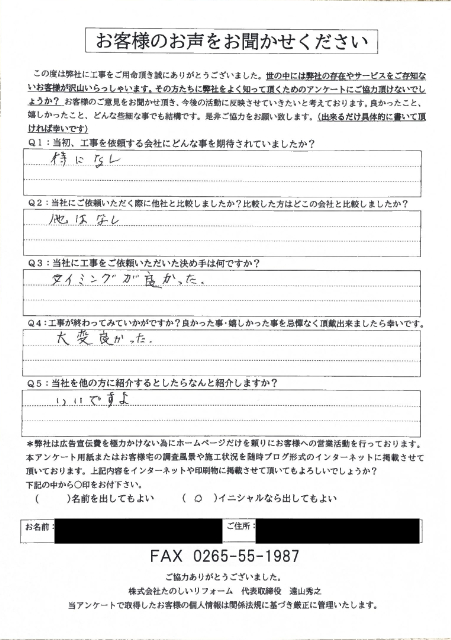 お客様のお声をお聞かせください
この度は弊社に工事をご用命頂き誠にありがとうございました。世の中には弊社の存在やサービスをご存知ない
お客様が沢山いらっしゃいます。その方たちに弊社をよく知って頂くためのアンケートにご協力頂けないでし
ょうか? お客様のご意見をお聞かせ頂き、今後の活動に反映させていきたいと考えております。良かったこと、
嬉しかったこと、どんな些細な事でも結構です。是非ご協力をお願い致します。(出来るだけ具体的に書いて頂
ければ幸いです)
Q1:当初、工事を依頼する会社にどんな事を期待されていましたか?
特になし
Q2:当社にご依頼いただく際に他社と比較しましたか?比較した方はどこの会社と比較しましたか?
他はなし
Q3:当社に工事をご依頼いただいた決め手は何ですか?
タイミングが良かった.
Q4:工事が終わってみていかがですか?良かった事・嬉しかった事を忌憚なく頂戴出来ましたら幸いです。
大変良かった.
Q5:当社を他の方に紹介するとしたらなんと紹介しますか?
いいですよ
*弊社は広告宣伝費を極力かけない為にホームページだけを頼りにお客様への営業活動を行っております。
本アンケート用紙またはお客様宅の調査風景や施工状況を随時ブログ形式のインターネットに掲載させて
頂いております。上記内容をインターネットや印刷物に掲載させて頂いてもよろしいでしょうか?
下記の中から○印をお付下さい。
( )名前を出してもよい ( ○ )イニシャルなら出してもよい
お名前: ご住所:
FAX 0265-55-1987
ご協力ありがとうございました。
株式会社たのしいリフォーム 代表取締役 遠山秀之
当アンケートで取得したお客様の個人情報は関係法規に基づき厳正に管理いたします。